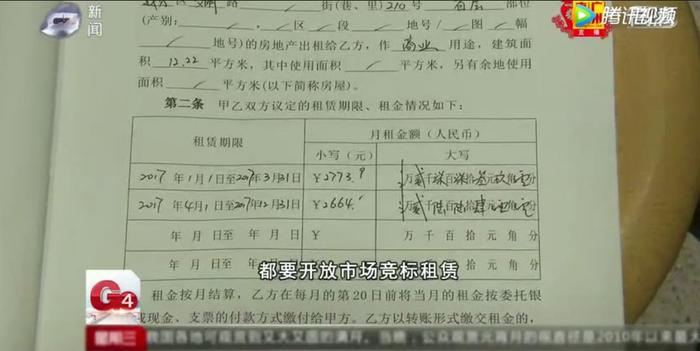 新闻
腾讯视频
直播
区 路 街(巷、里)210号 首层 部位
(产别: 区 段 地号/图 幅
地号)的房地产出租给乙方,作 商业 用途,建筑面
积 12.22 平方米,其中使用面积 平方米,另有余地使用
面积 平方米(以下简称房屋)。
第二条 甲乙双方议定的租赁期限、租金情况如下:
租赁期限 月租金额(人民币)
小写(元) 大写
2017年1月1日至2017年3月31日 ¥2773.9 万贰千柒百柒拾叁元玖角零分
2017年4月1日至2017年12月31日 ¥2664. 万贰千陆百陆拾肆元零角零分
年 月 日至 年 月 日 ¥ 万 千 百 拾 元 角 分
年 月 日至 年 月 日 万 千 百 拾 元 角 分
都要开放市场竞标租赁
G4
租金按月结算,乙方在每月的第20日前将当月的租金按委托银
或现金、支票的付款方式缴付给甲方。乙方以转账形式缴交租金的,
星期三